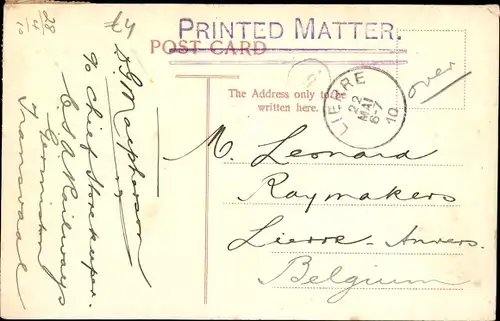 PRINTED MATTER.
POST CARD
The Address only to be
written here.
over
LIERRE
22
MAI
6-7
10
M. Leonard
Raymakers
Lierre - Anvers.
Belgium
28/4/10
£4
D G Macpherson
c/o Chief Storekeeper.
C S A Railways
Germiston
Transvaal